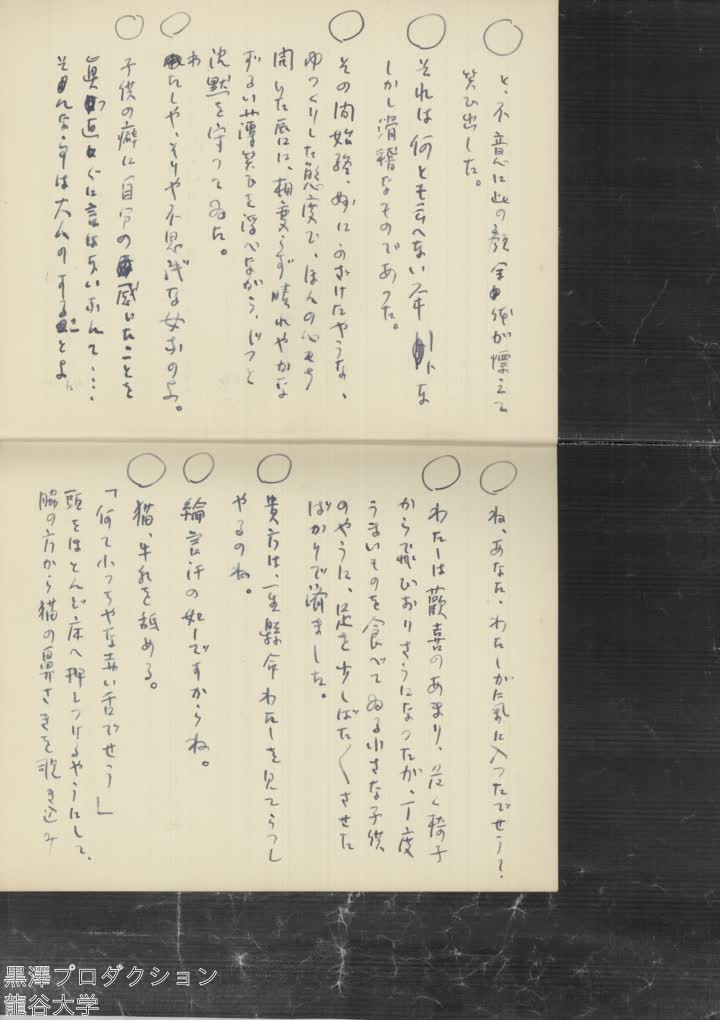 と、不意に此の顔全体が慄えて
笑ひ出した。
それは何とも云へない
しかし滑稽なものであった。
その間始終、妙にふざけたやうな、
ゆっくりした態度で、ほんの心もち
開いた唇に、相変らず晴れやかな
ずるい薄笑ひを浮べながら、じっと
沈黙を守ってゐた。
わたしや、そりや不思議な女なのよ。
子供の癖に自分の感じたことを
真直ぐに言はないなんて‥‥
そんな事は大人のすることよ
ね、あなた、わたしが気に入ったでせう？
わたしは歓喜のあまり、危く椅子
から飛びおりさうになったが、丁度
うまいものを食べてゐる小さな子供
のやうに、足を少しばた〱させた
ばかりで済ました。
貴方は、一生懸命わたしを見てらっし
やるのね。
綸言汗の如しですからね。
猫、牛乳を舐める。
「何て小っちゃな赤い舌でせう」
頭をほとんど床へ押しつけるやうにして、
脇の方から猫の鼻さきを覗き込み
黒澤プロダクション
龍谷大学